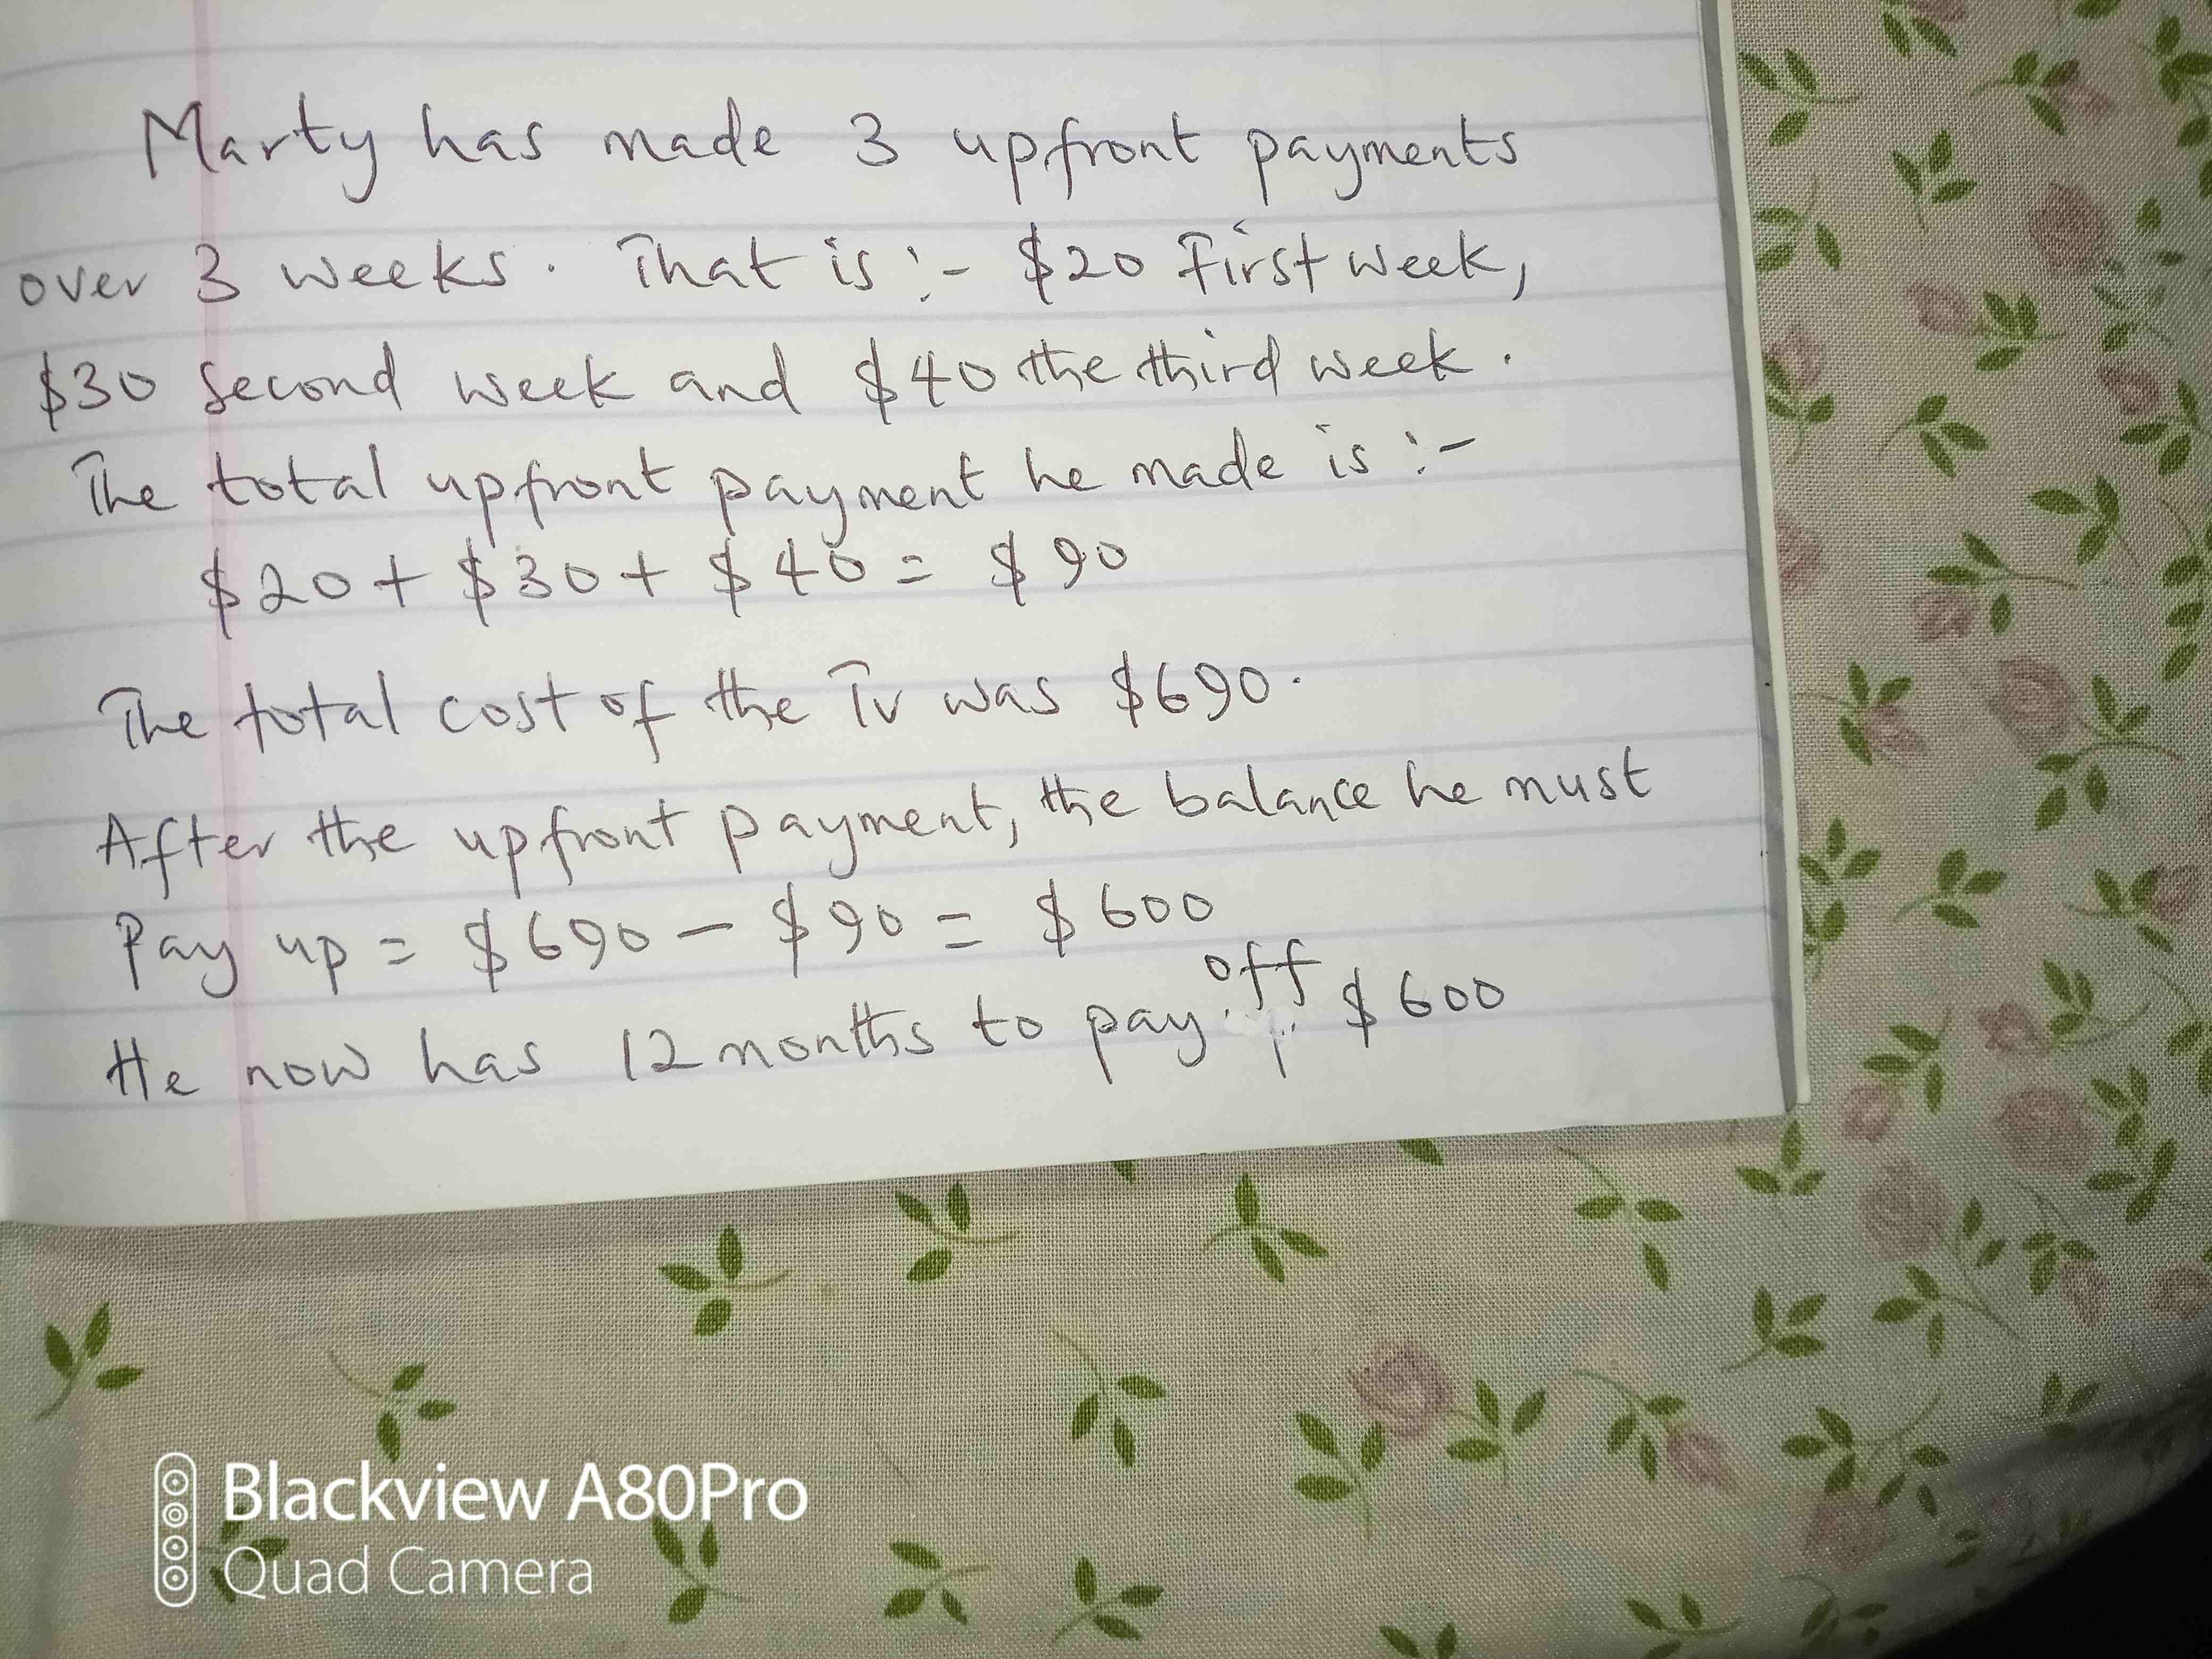 Marty has made 3 upfront payments
over 3 weeks. That is :- $20 First week,
$30 Second week and $40 the third week.
The total upfront payment he made is :-
$20 + $30 + $40 = $90
The total cost of the Tv was $690.
After the upfront payment, the balance he must
Pay up = $690 - $90 = $600
He now has 12 months to pay off $600
Blackview A80Pro
Quad Camera